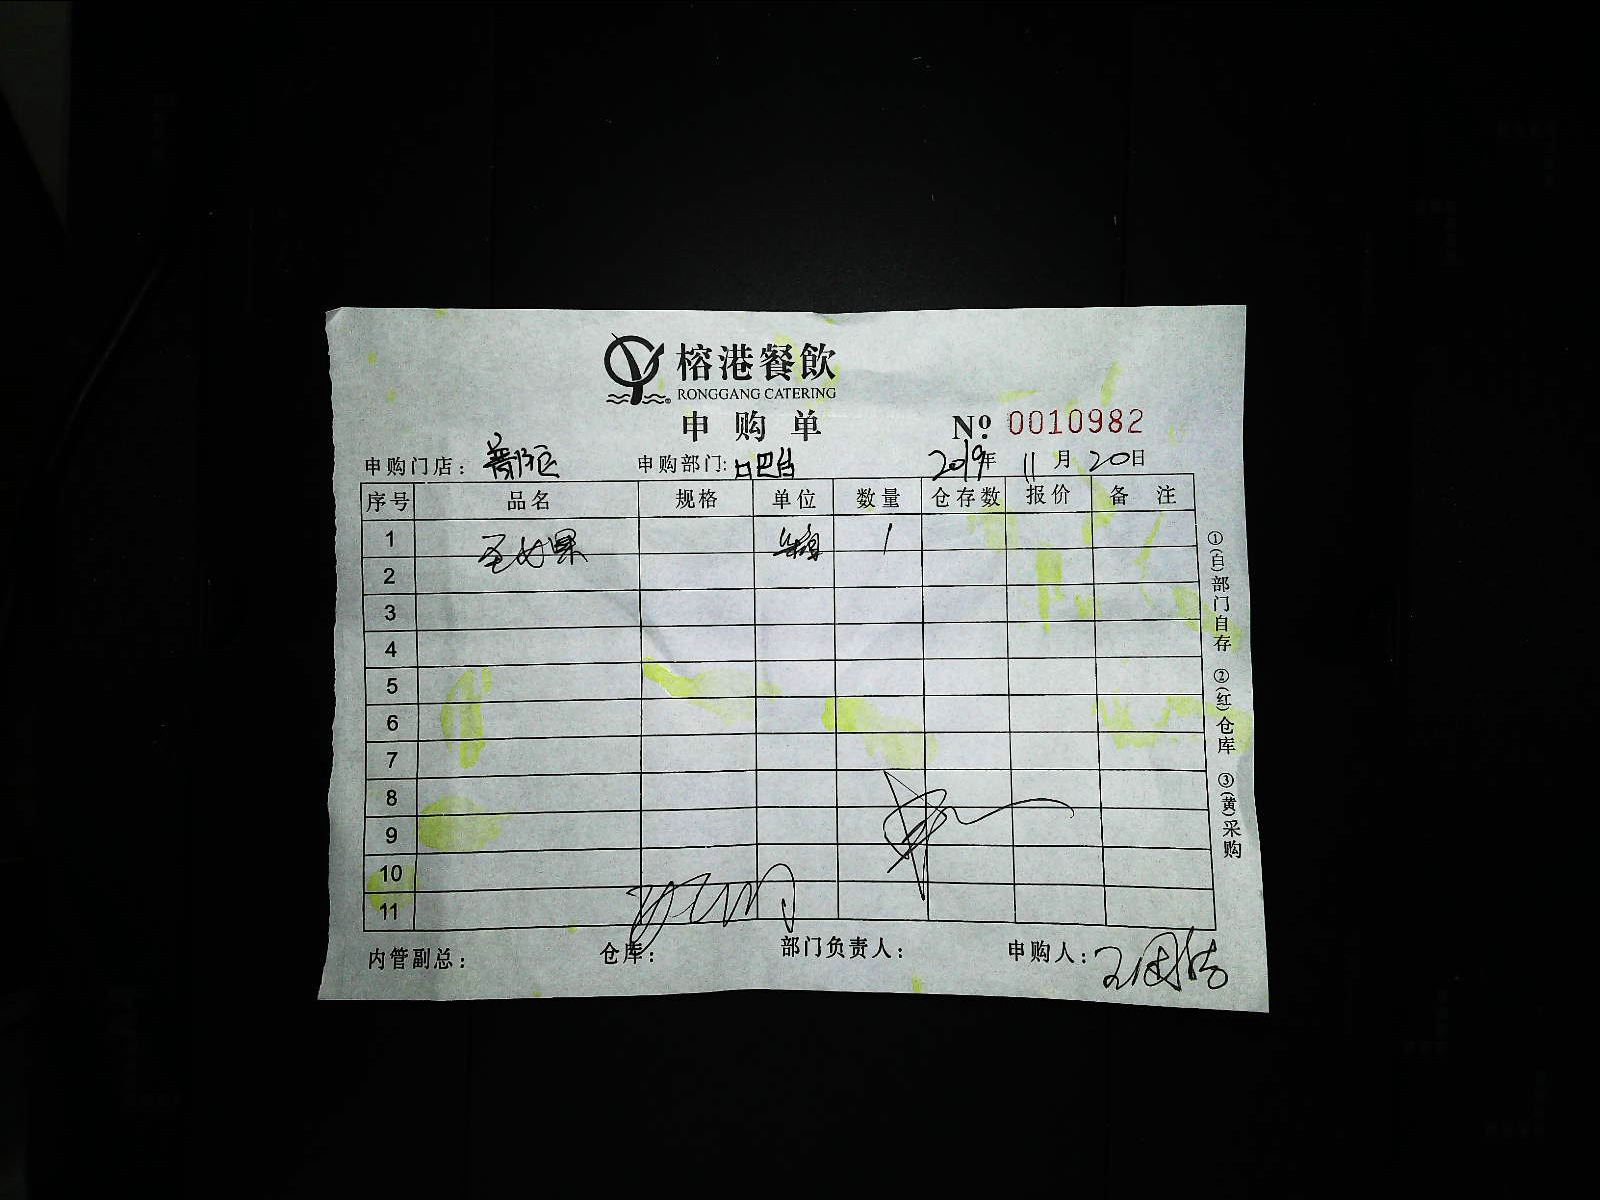 榕港餐飲
RONGGANG CATERING
申购单
Nº 0010982
申购门店：普陀区 申购部门：吧台 2019年 11月 20日
序号 品名 规格 单位 数量 仓存数 报价 备注
1 圣女果 1
2
3
4
5
6
7
8
9
10
11
内管副总： 仓库： 部门负责人： 申购人：
①(白)部门自存 ②(红)仓库 ③(黄)采购